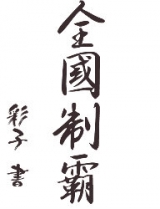 全國制霸
彩子 書